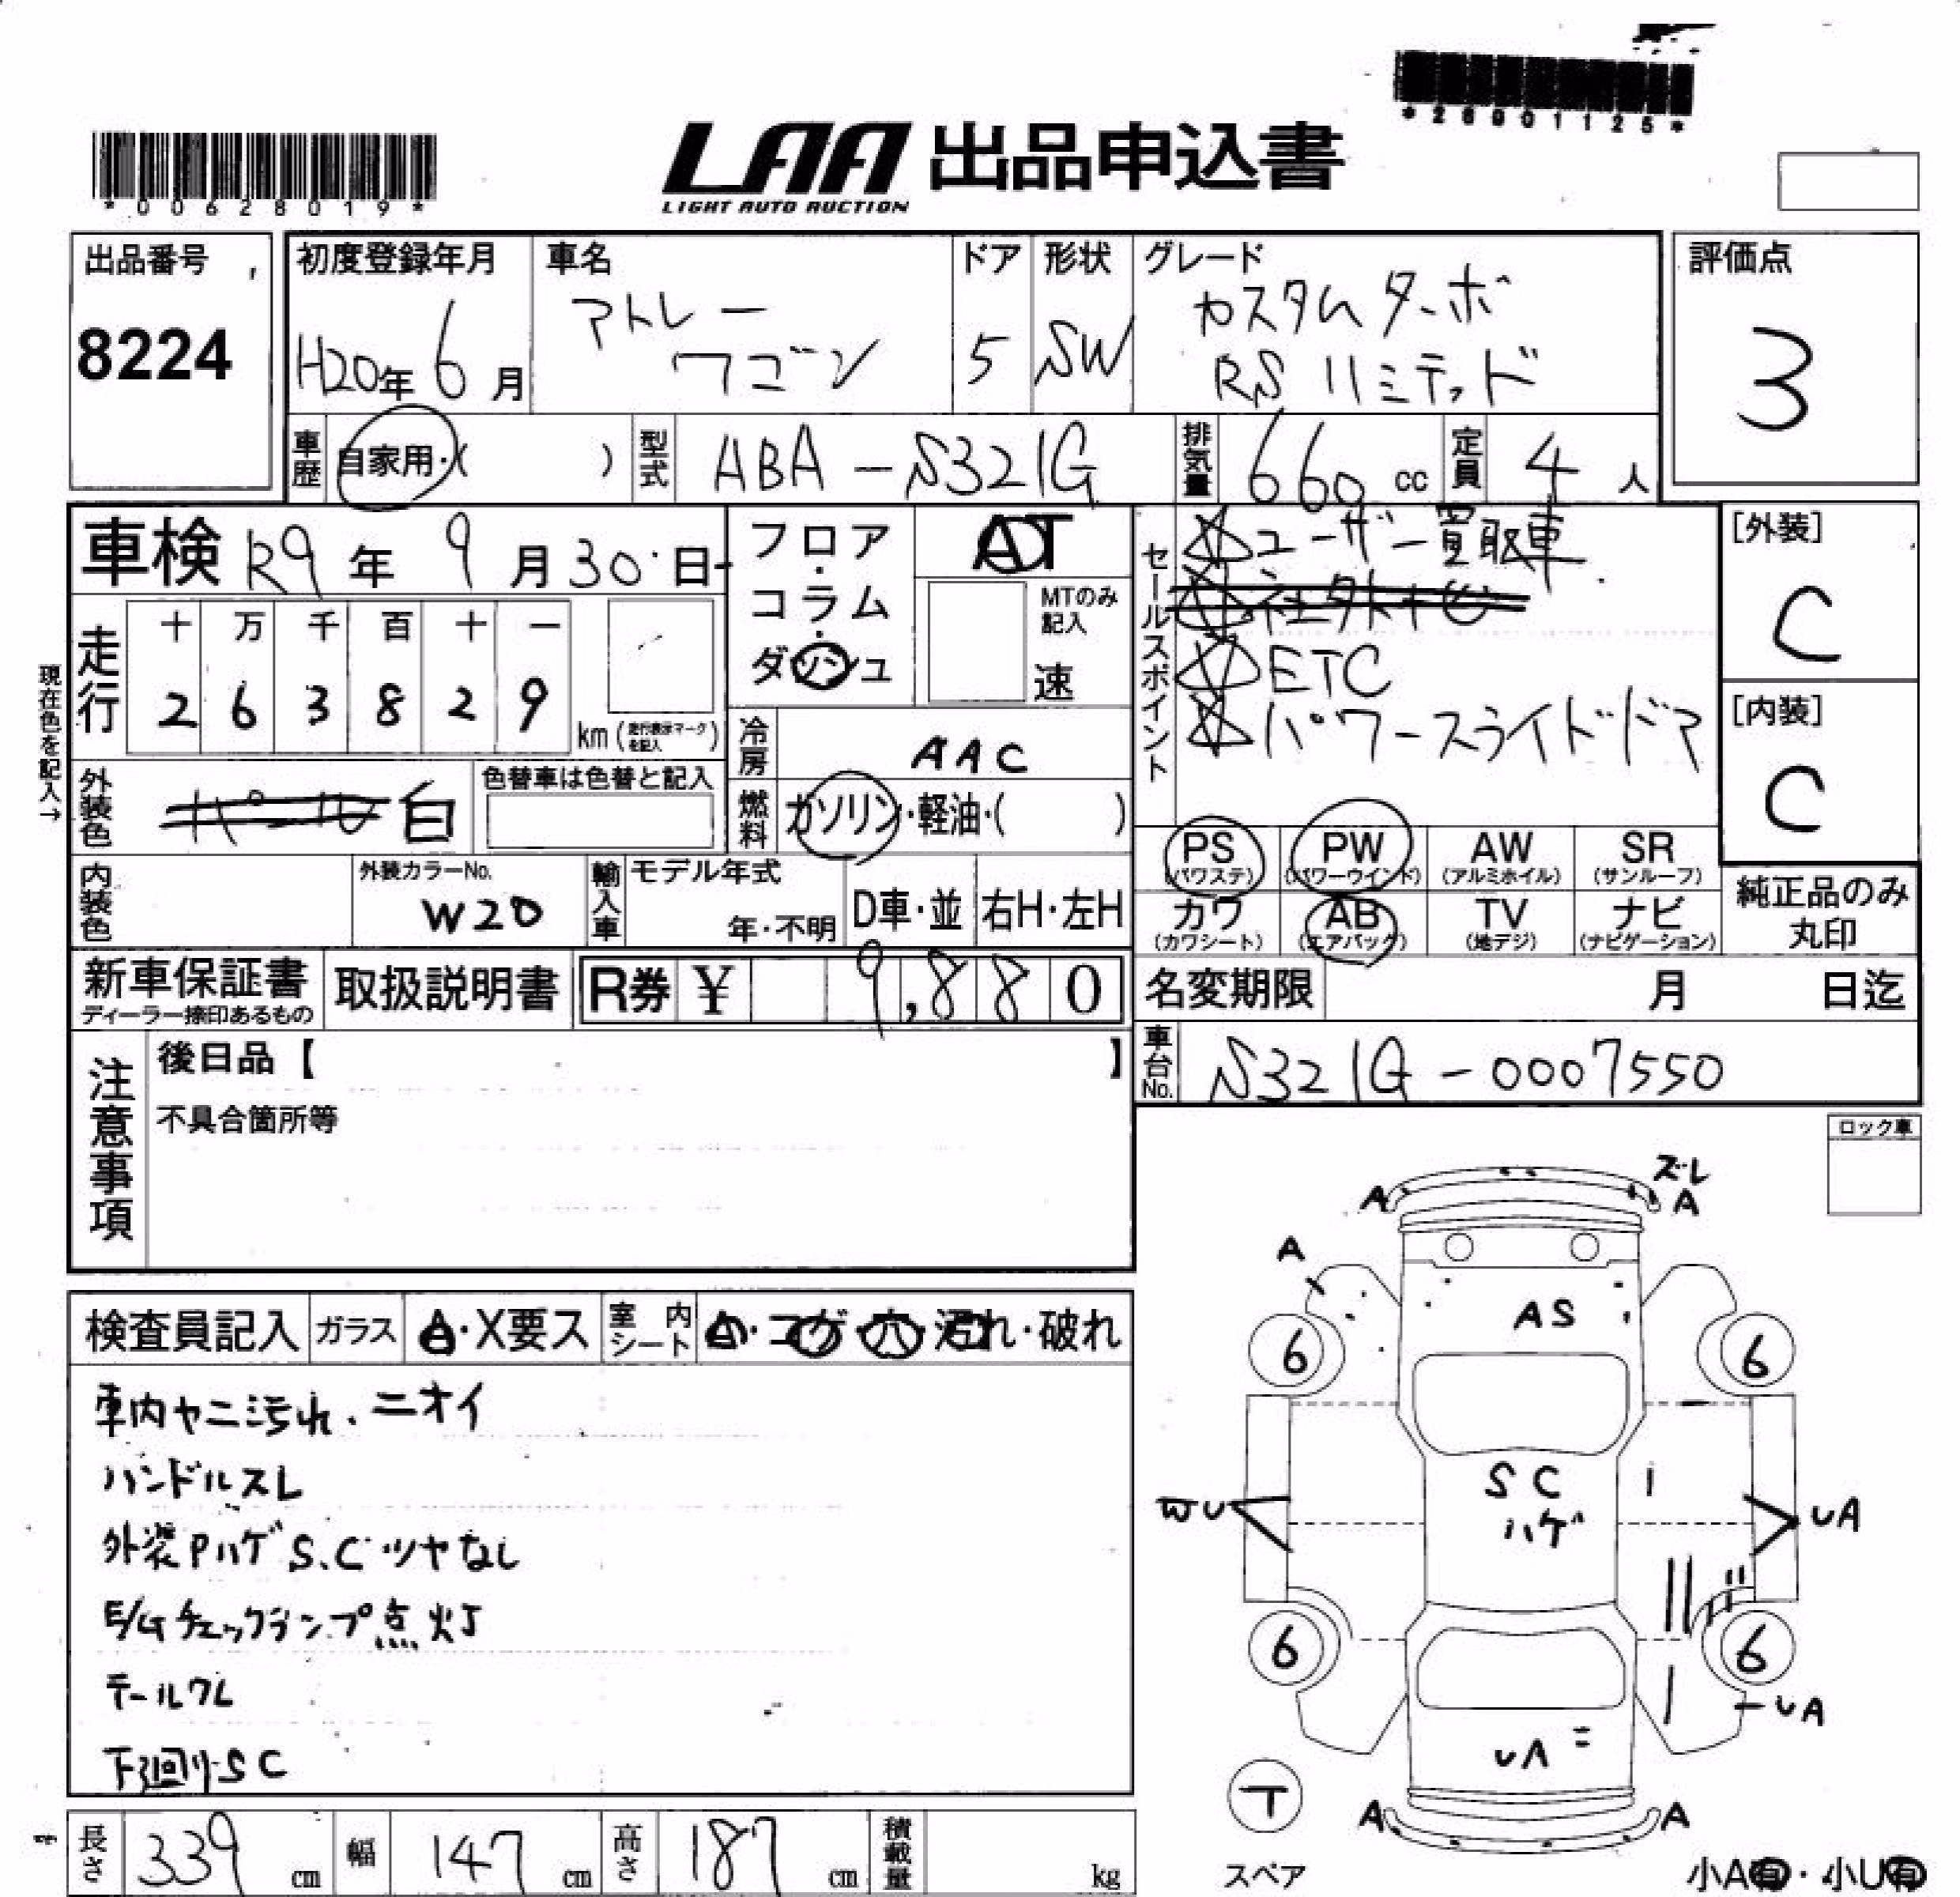 *26001125*
*00628019*
LAA 出品申込書
LIGHT AUTO AUCTION
出品番号
8224
初度登録年月
H20年 6月
車名
アトレー
ワゴン
ドア
5
形状
SW
グレード
カスタムターボ
RSリミテッド
評価点
3
車歴
自家用・( )
型式
ABA-S321G
排気量
660 cc
定員
4 人
車検 R9年 9月 30日
フロア・コラム・ダッシュ
AT
MTのみ記入
速
セールスポイント
☆ユーザー買取車
☆ETC
☆パワースライドドア
[外装]
C
[内装]
C
現在色を記入→
走行
十 万 千 百 十 一
2 6 3 8 2 9
km (走行表示マークを記入)
冷房
AAC
外装色
パール 白
色替車は色替と記入
燃料
ガソリン・軽油・( )
PS (パワステ)
PW (パワーウインド)
AW (アルミホイル)
SR (サンルーフ)
内装色
外装カラーNo.
W20
輸入車
モデル年式
年・不明
D車・並
右H・左H
カワ (カワシート)
AB (エアバック)
TV (地デジ)
ナビ (ナビゲーション)
純正品のみ丸印
新車保証書
ディーラー捺印あるもの
取扱説明書
R券 ¥ 9,880
名変期限 月 日迄
車台No.
S321G-0007550
注意事項
後日品【 】
不具合箇所等
ロック車
検査員記入
ガラス
A・X要ス
室内シート
・コゲ・穴・汚れ・破れ
車内ヤニ汚れ、ニオイ
ハンドルスレ
外装Pハゲ S、C ツヤなし
E/Gチェックランプ点灯
テールクL
下廻りSC
ズレ
A
A
A
AS
6
6
SC
ハゲ
WU
UA
6
6
UA
UA
A
A
T
スペア
小A有・小U有
長さ 339 cm
幅 147 cm
高さ 187 cm
積載量 kg